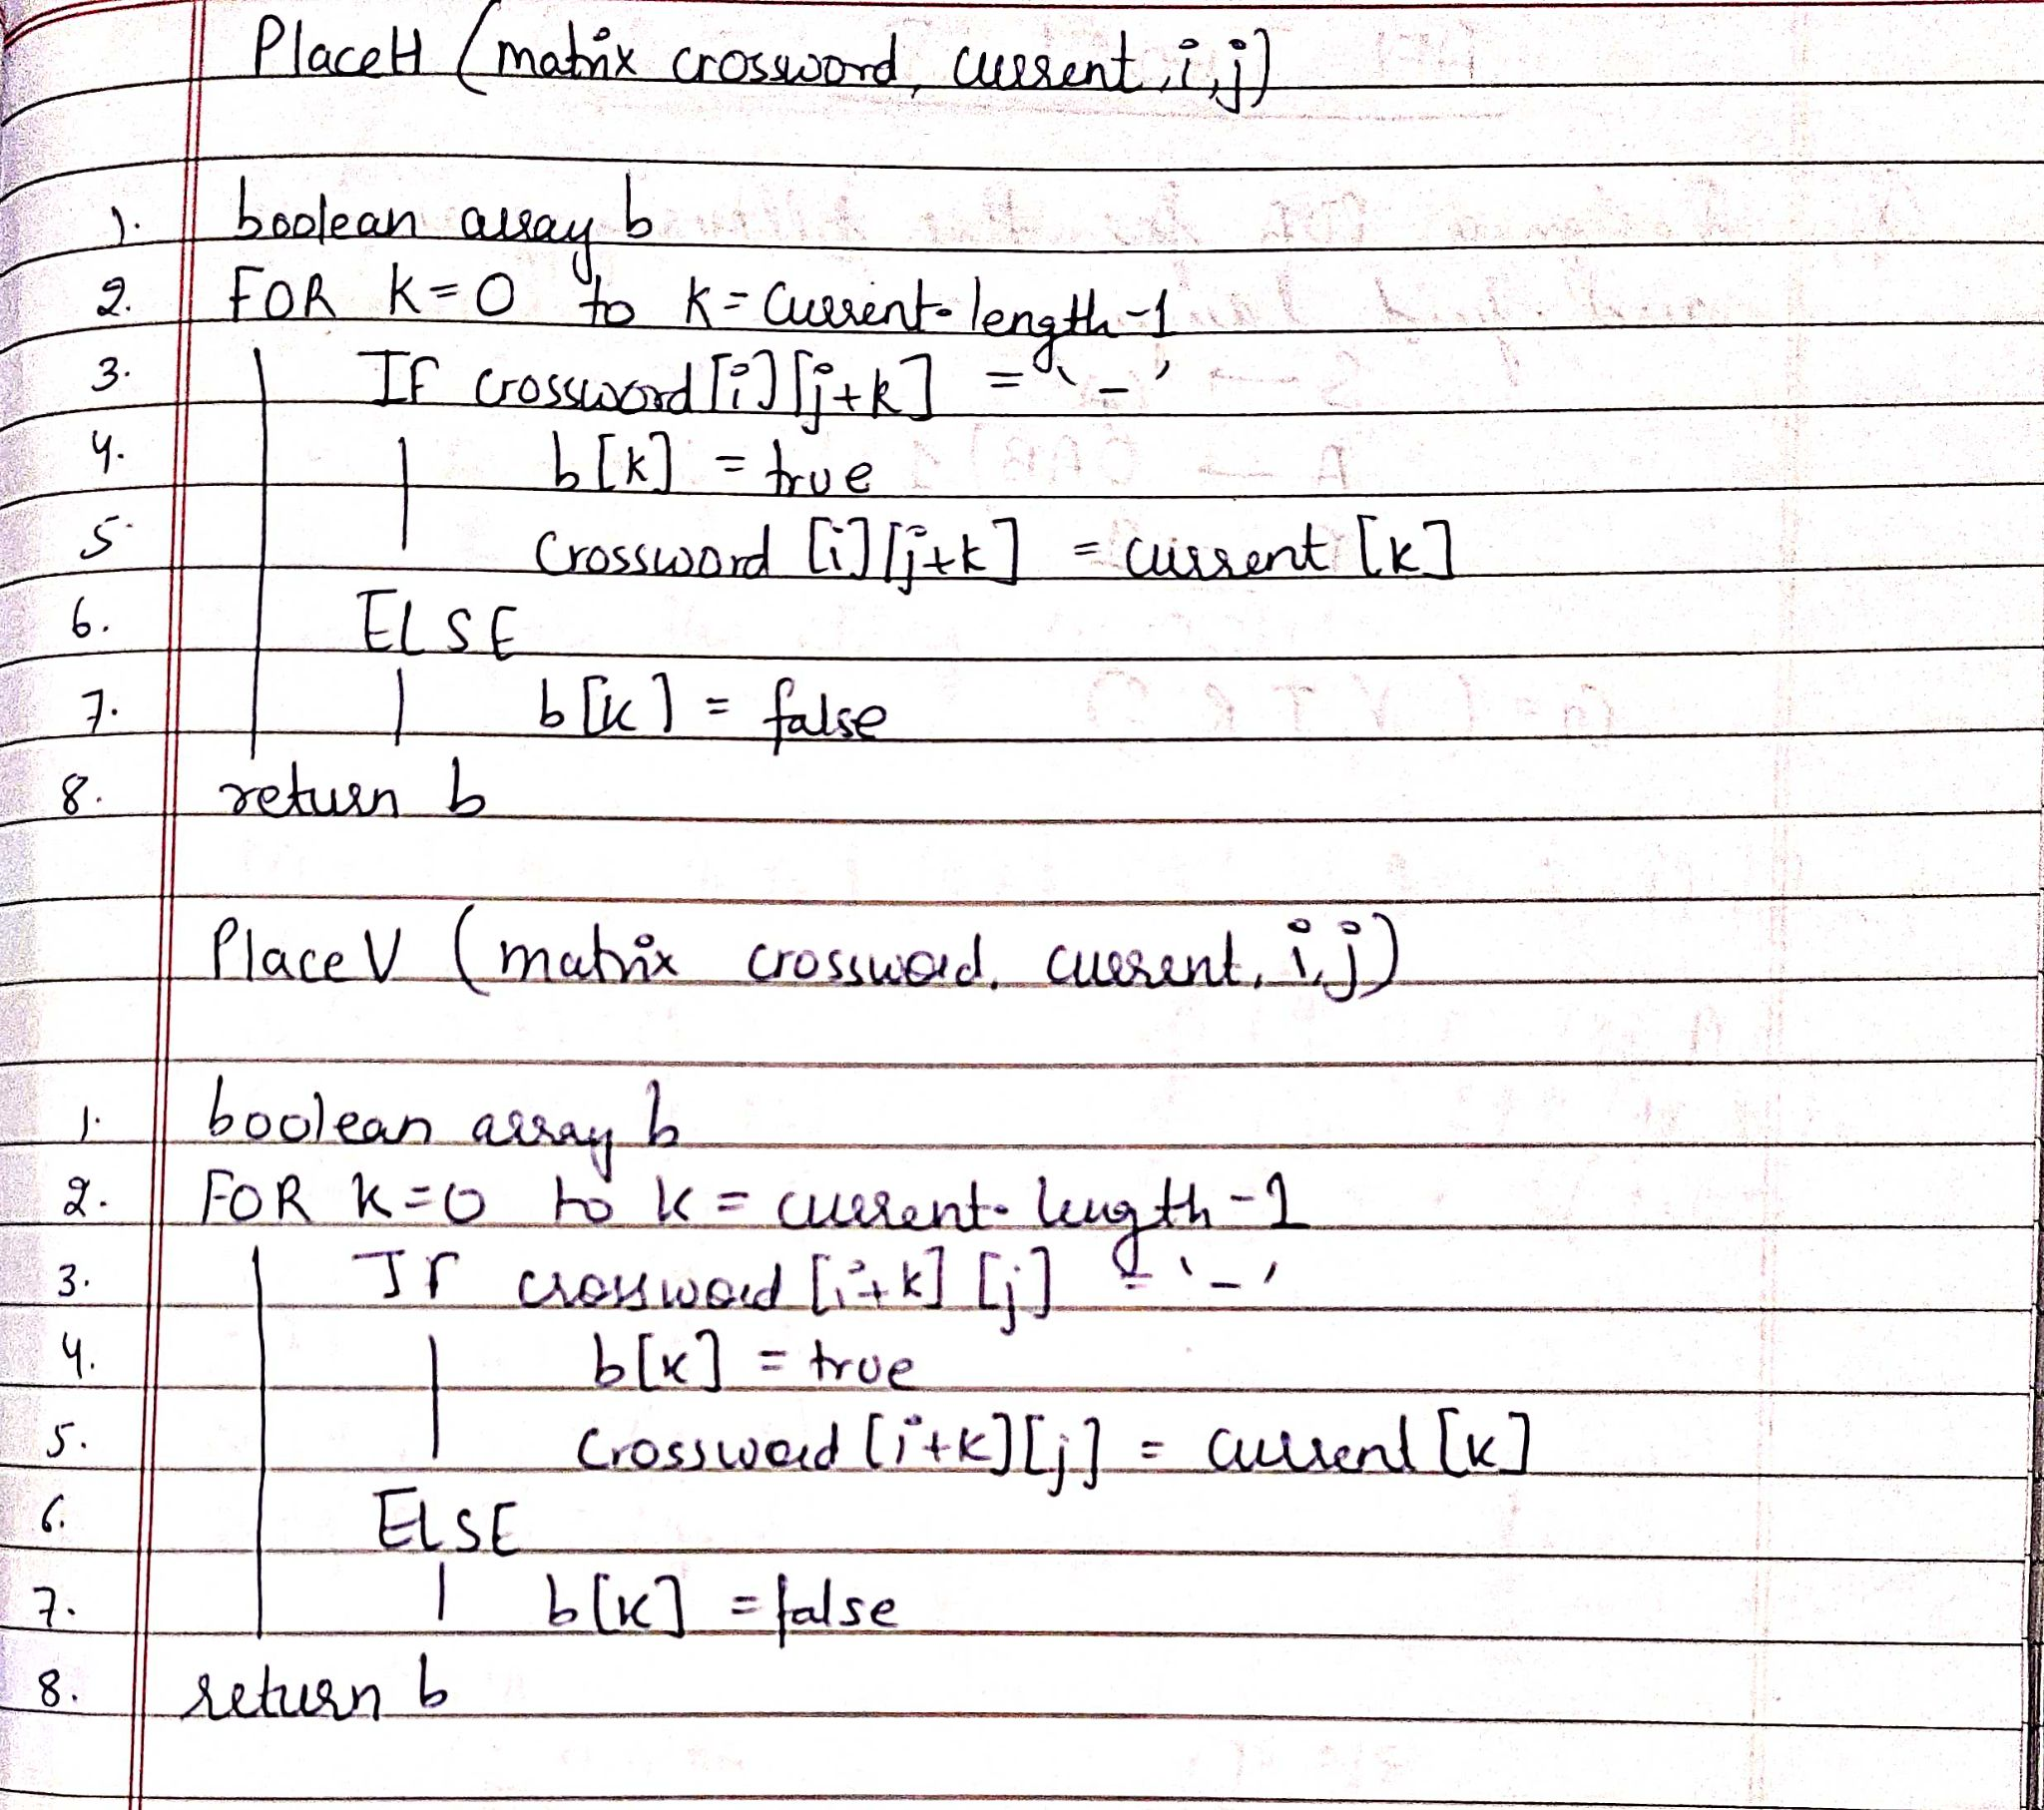 PlaceH (matrix crossword, current, i,j)
1. boolean array b
2. FOR k=0 to k=current.length-1
3. IF crossword[i][j+k] = '_'
4. b[k] = true
5. crossword [i][j+k] = current [k]
6. ELSE
7. b[k] = false
8. return b
PlaceV (matrix crossword, current, i,j)
1. boolean array b
2. FOR k=0 to k = current.length-1
3. IF crossword [i+k] [j] = '_'
4. b[k] = true
5. crossword [i+k][j] = current [k]
6. ELSE
7. b[k] = false
8. return b